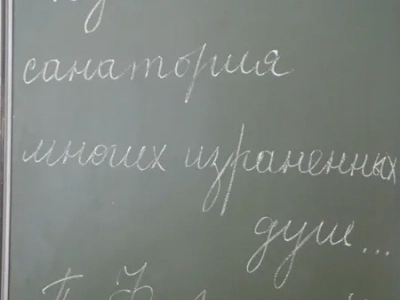 санатория
многих израненных
душ...